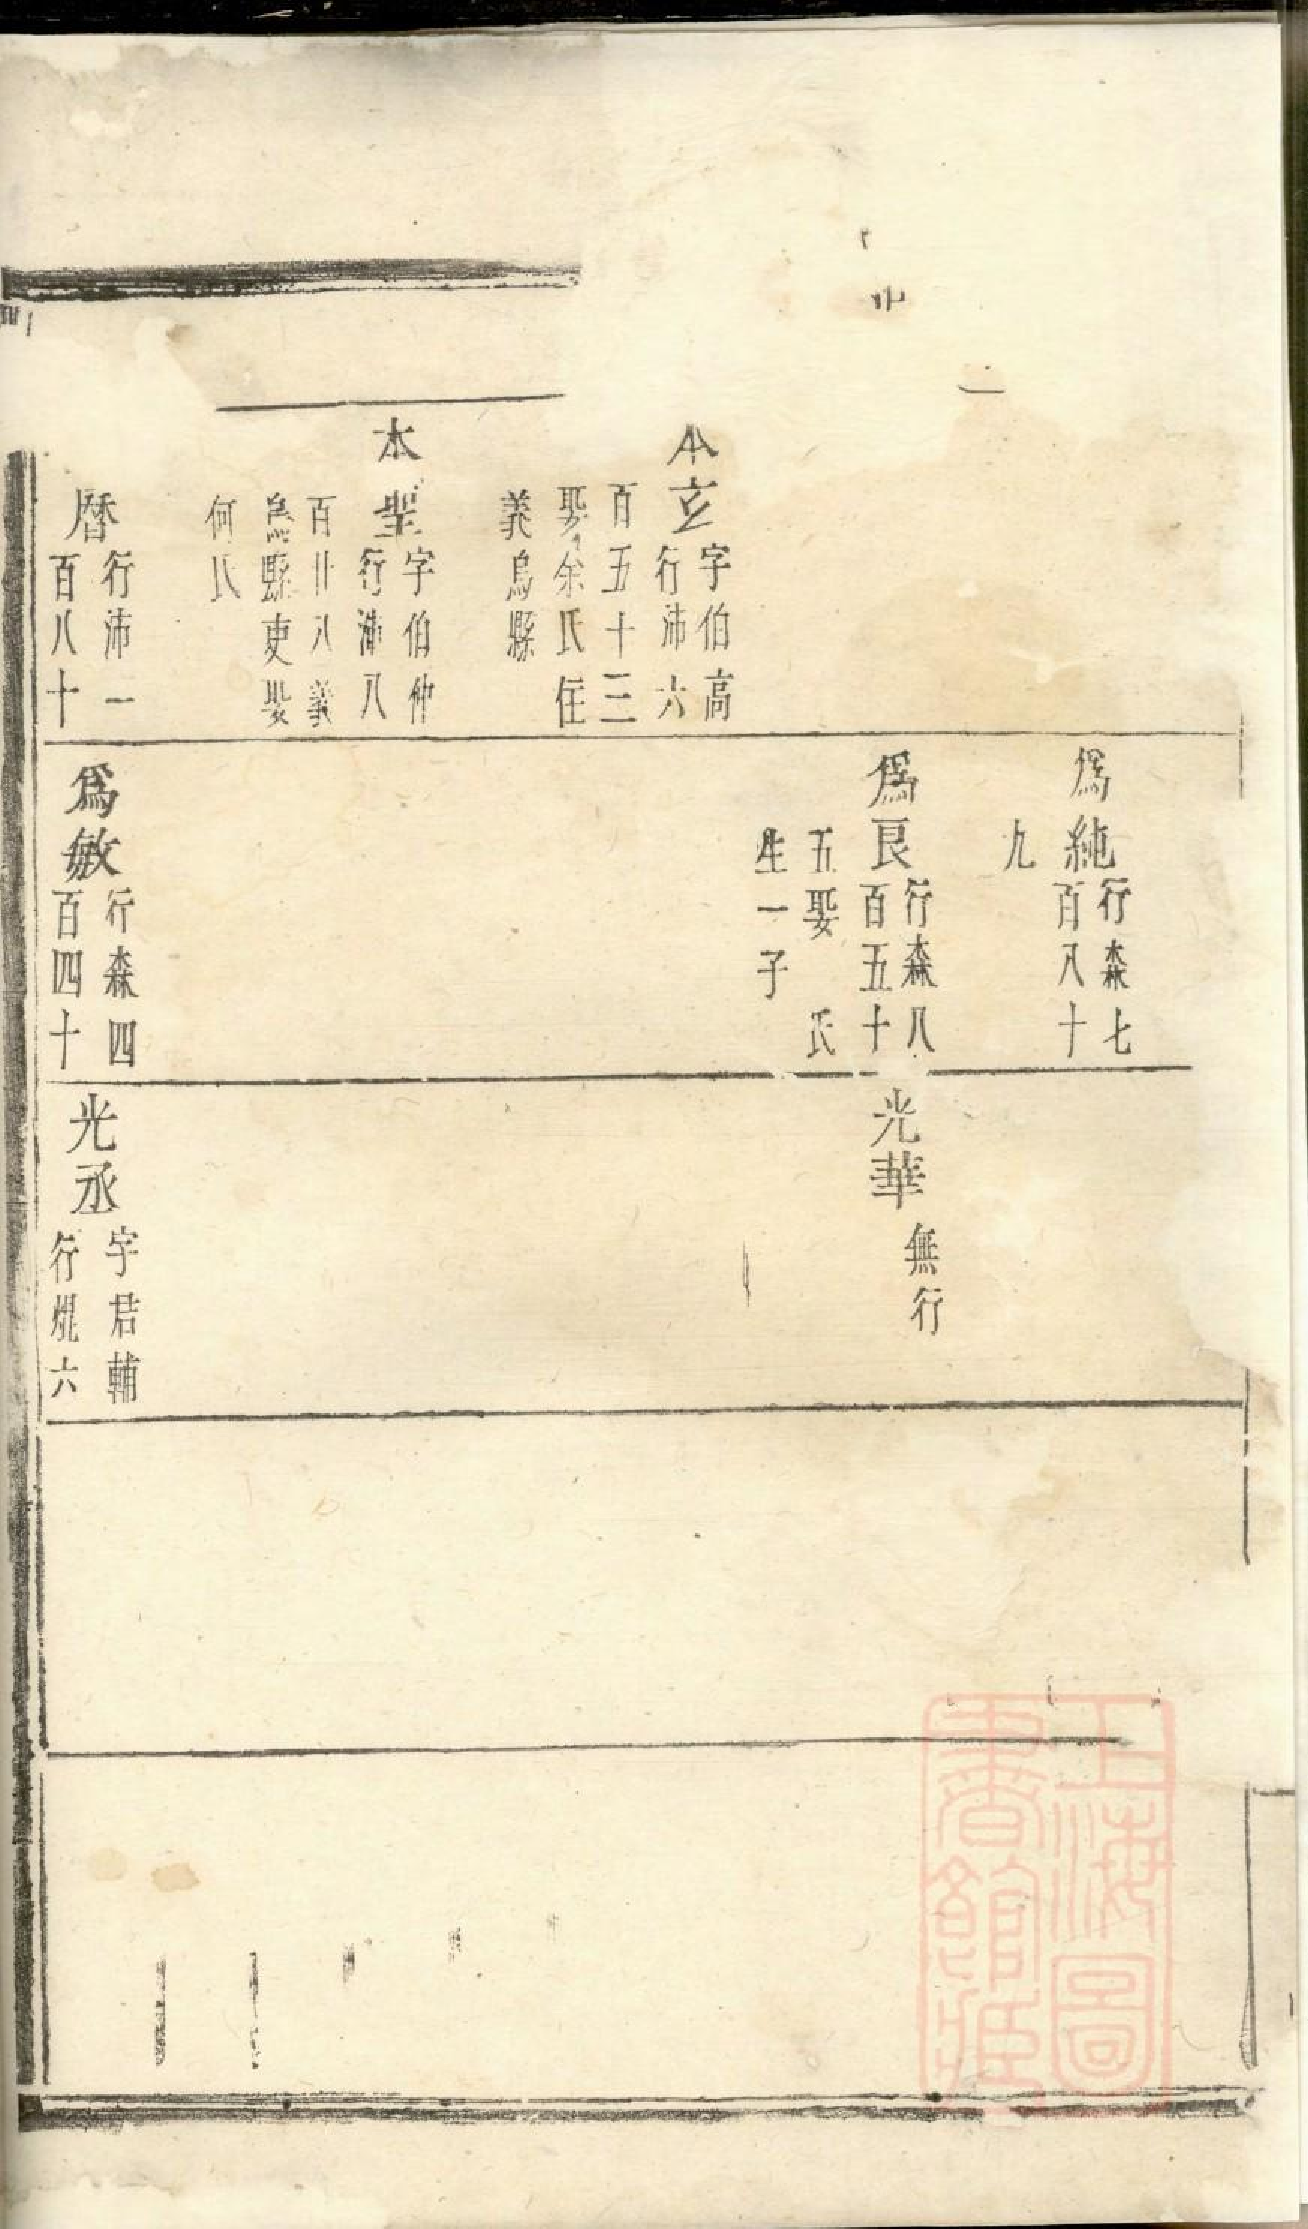 本立
字伯高
行沛六
百五十三
娶余氏住
義烏縣
本聖
字伯仲
行沛八
百廿八義
烏縣吏娶
何氏
曆
行沛一
百八十
為純
行森七
百八十
九
為良
行森八
百五十
五娶 氏
生一子
為敏
行森四
百四十
光華
無行
光丞
字君輔
行焜六
上海圖
書館藏